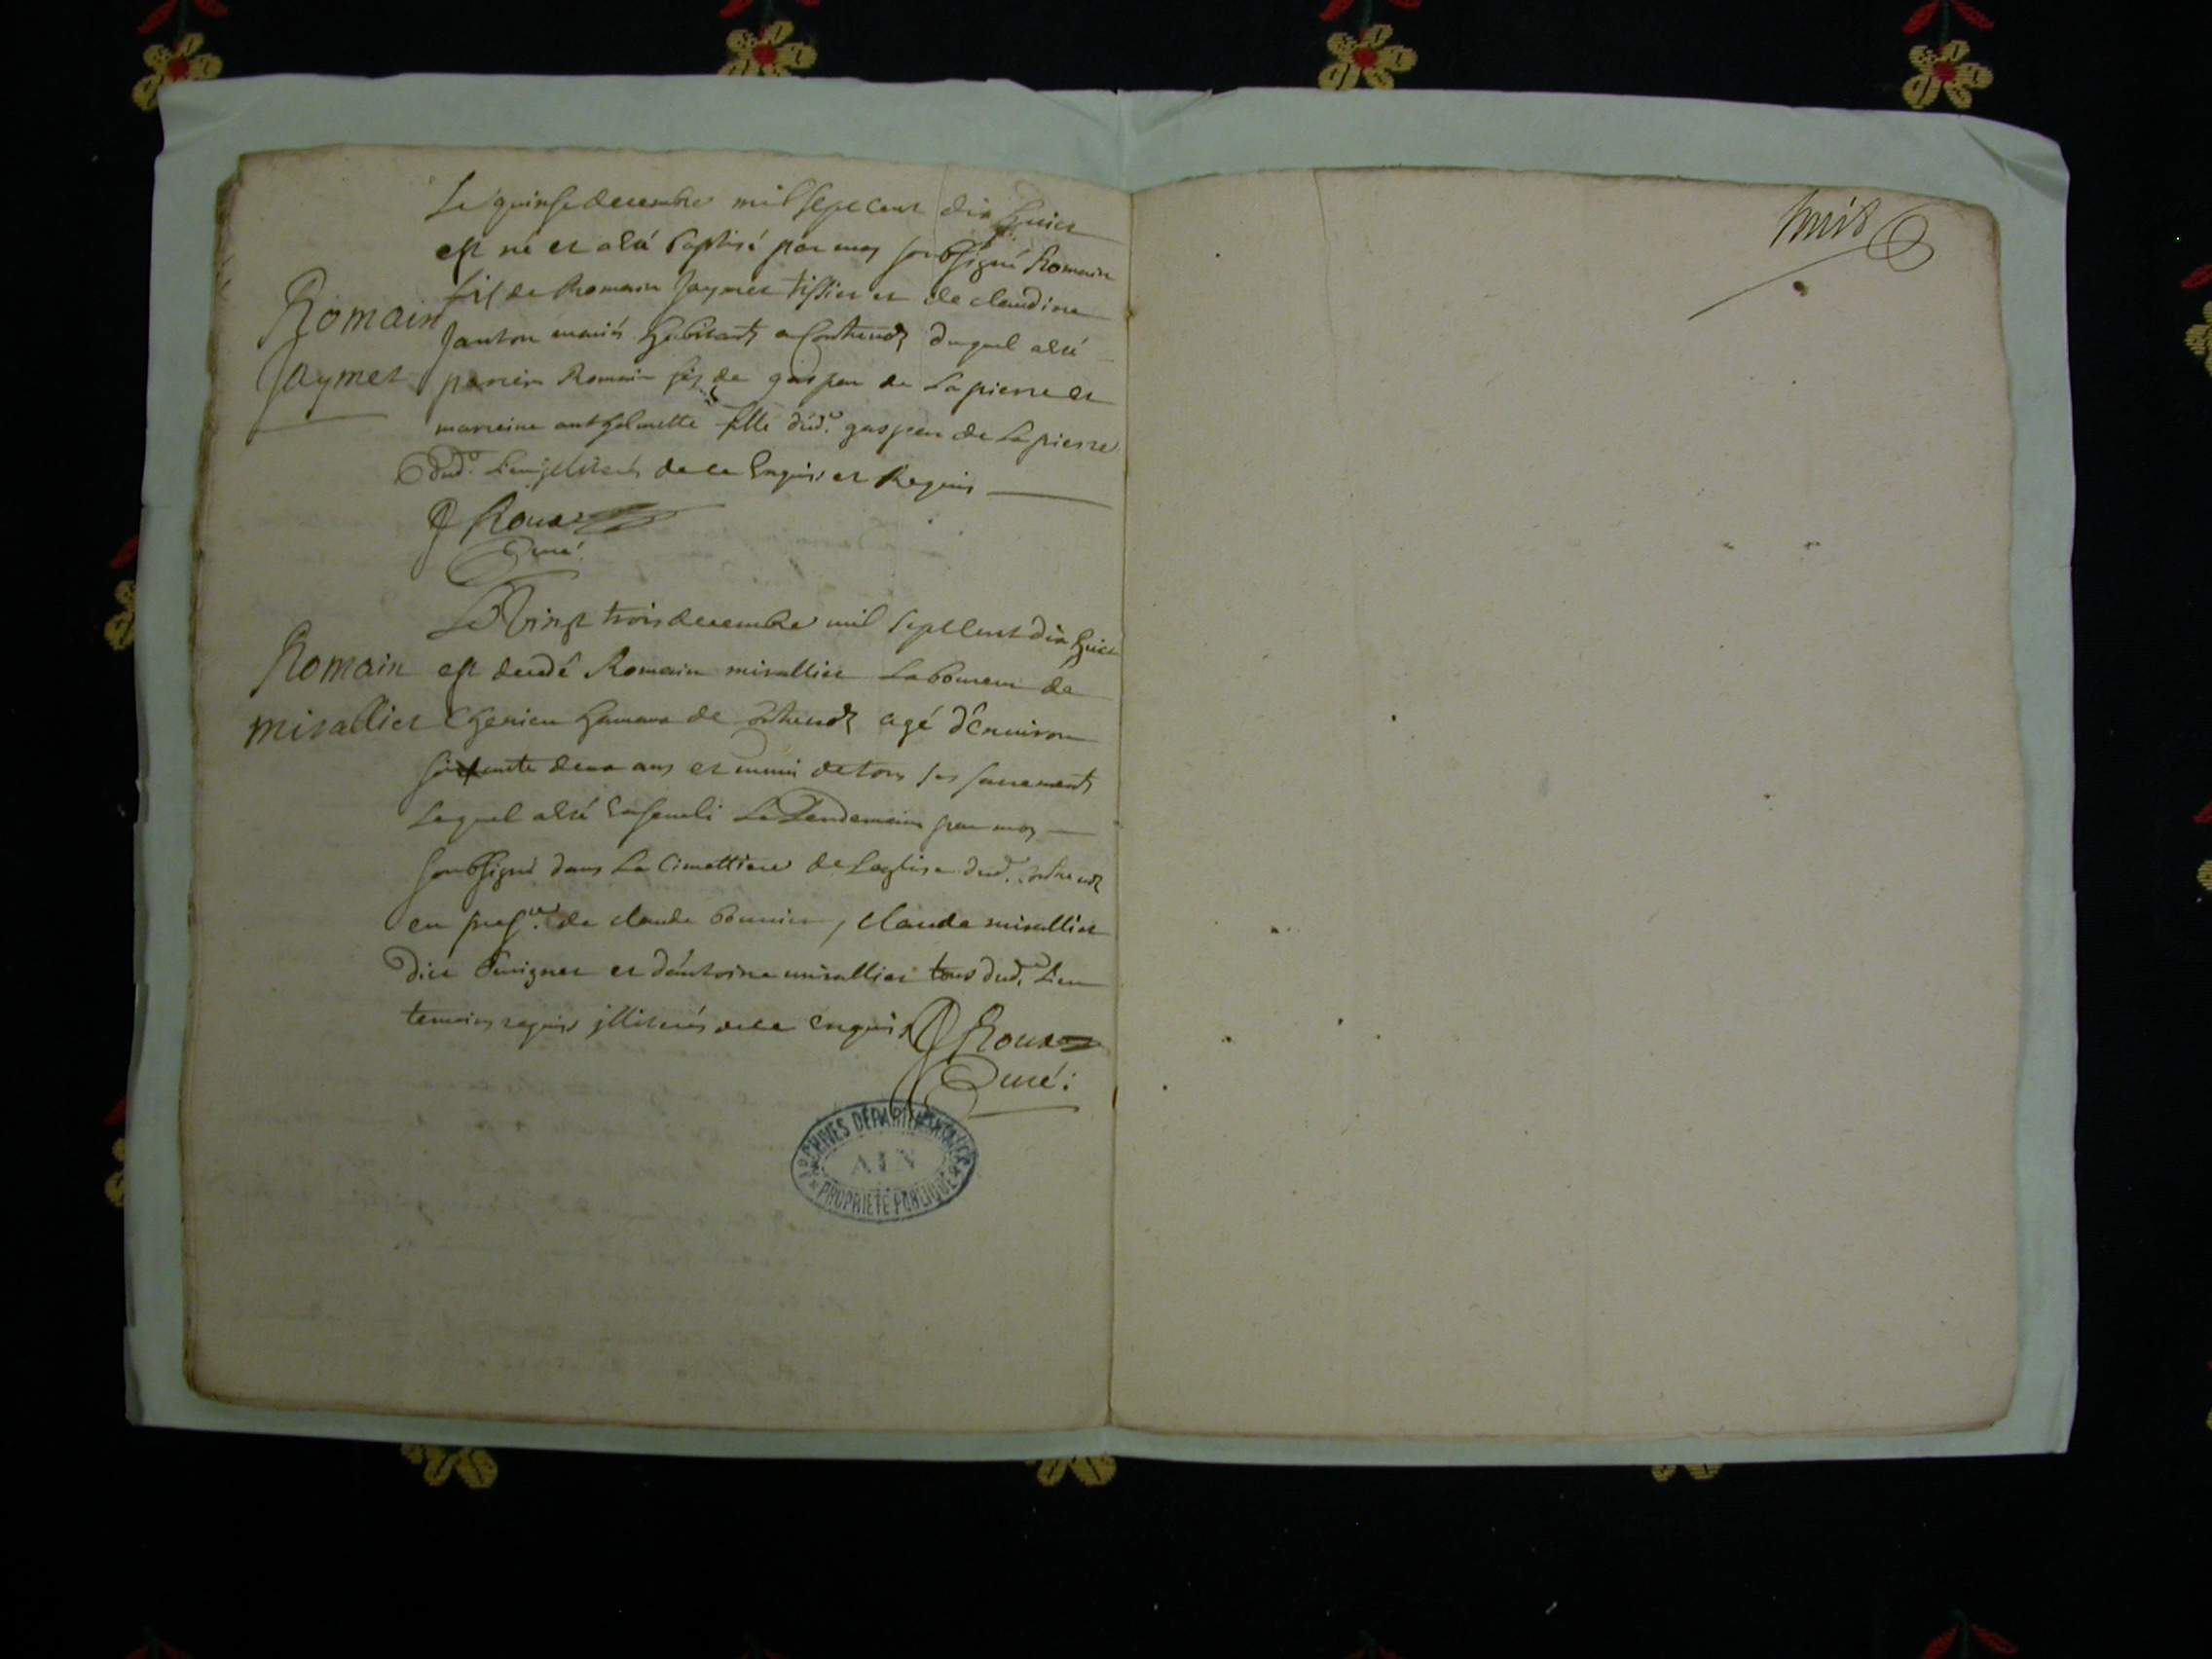 Le quinse decembre mil sept cent dix huict
est né et a esté baptisé par moy soubsigné Romain
fils de Romain Jaymet tissier et de claudine
Romain
Janton mariés habitants a Conthenod duquel a esté
Jaymet
parrin Romain fils de gaspar de Lapierre et
marreine anthelmette fille dud. gaspar de Lapierre
dud. Lieu illiterés de ce Enquis et Requis
J Roux
Curé
Le Vingt trois decembre mil sept Cent dix huict
Romain
est decedé Romain mirallier Laboureur de
mirallier
hameau de Conthenod agé d'Environ
soixante deux ans et muni de tous ses sacrements
Lequel a esté Enseveli Le Lendemain par moy
soubsigné dans Le Cimettiere de Leglise dud. Conthenod
en presce. de claude , claude mirallier
dict et d'antoine mirallier tous dud. Lieu
temoins requis illiterés de ce Enquis J Roux
Curé.
ARCHIVES DÉPARTEMENTALES
AIN
PROPRIÉTÉ PUBLIQUE
huit